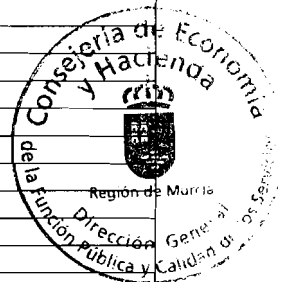 Consejería de Economía
y Hacienda
Región de Murcia
Dirección General
de la Función Pública y Calidad de los